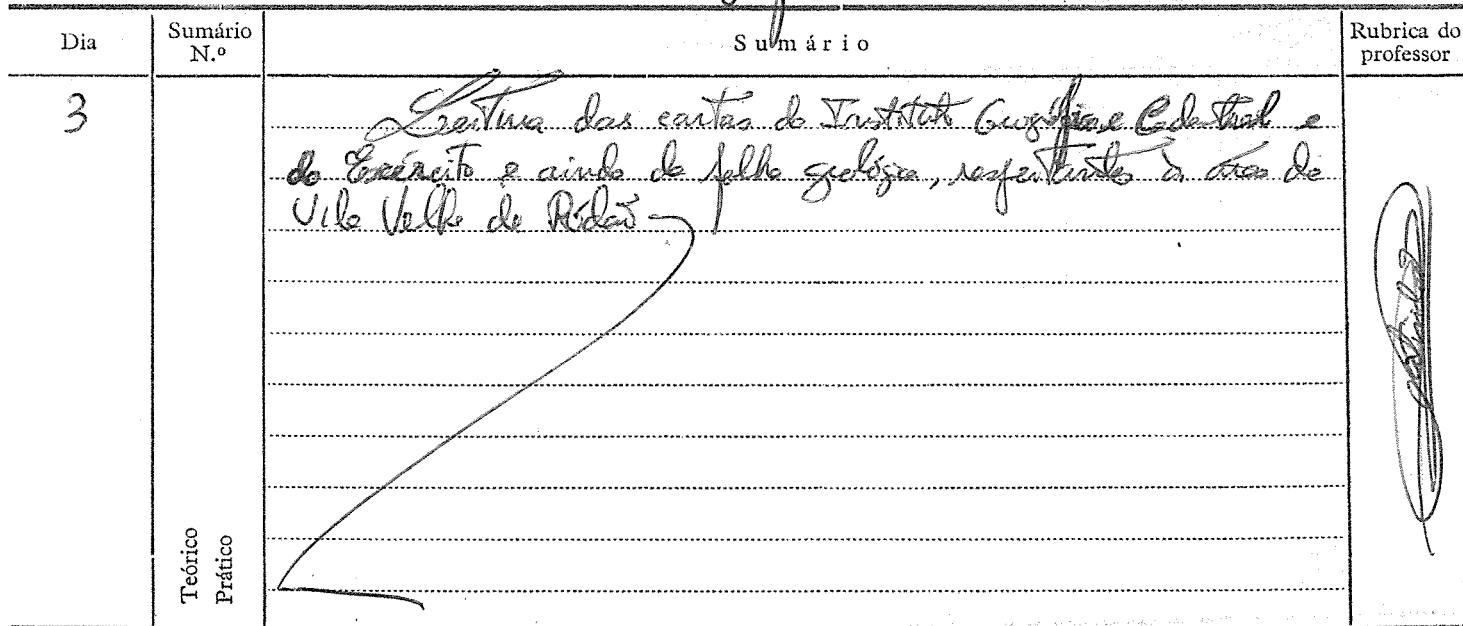 Dia
Sumário
N.º
Sumário
Rubrica do
professor
3
Leitura das cartas do Instituto Geográfico e Cadastral e
do Exército e ainda da folha geológica, respeitantes à área de
Vila Velha de Ródão
Teórico
Prático